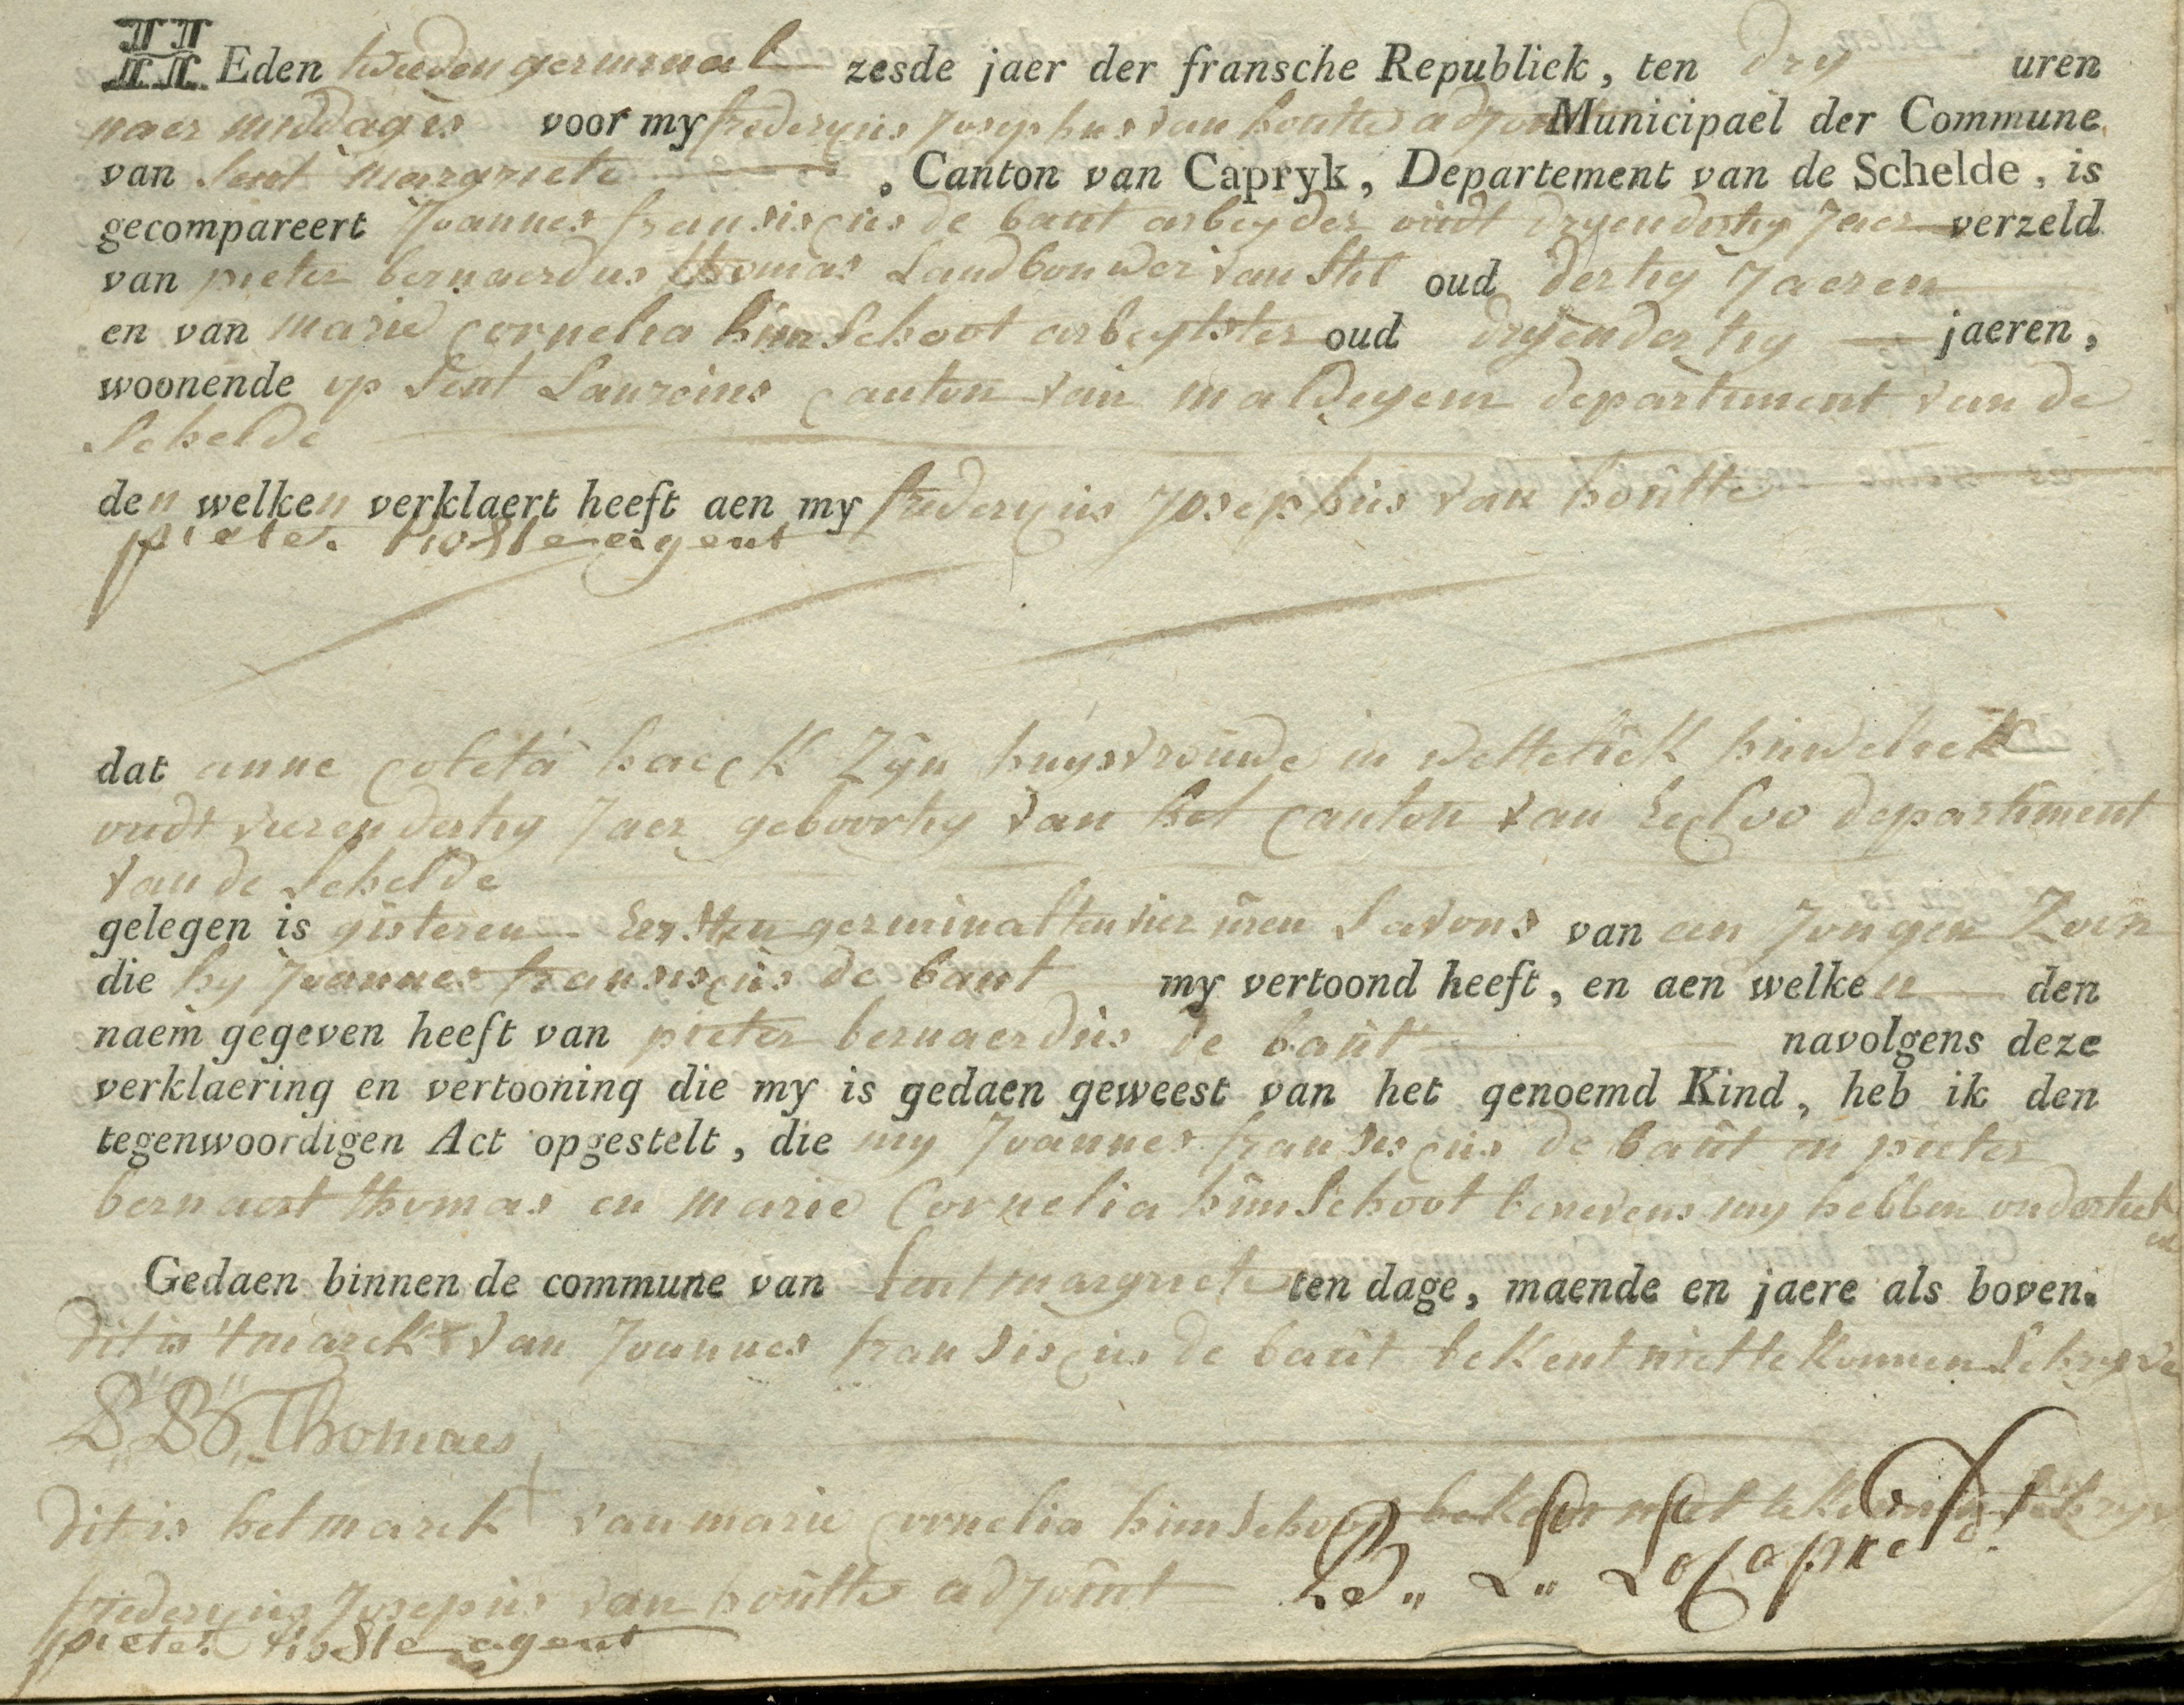 HEden tweeden germinal zesde jaer der fransche Republiek, ten dry uren
naer middags voor my fredericus Josephus van houtte adjoint Municipael der Commune
van Sent margriete , Canton van Capryk, Departement van de Schelde, is
gecompareert Joannes fransiscus de baut arbeyder oudt dryendertig Jaer verzeld
van pieter bernaerdus thomas Landbouwer van Stiel oud dertig Jaeren
en van marie cornelia himschoot arbeytster oud dryendertig jaeren,
woonende op Sent Laureins canton van maldegem departement van de
Schelde
den welken verklaert heeft aen my fredericus Josephus van houtte
pieter agent
dat anne coleta haeck Zijn huysvrouwe in wettelick huwelick
oudt vierendertig Jaer geboortig van het canton van Eecloo departiment
van de Schelde
gelegen is gisteren Eersten germinal ten vier uren Savons van een Jongen Zoon
die hy Joannes fransiscus de baut my vertoond heeft, en aen welken den
naem gegeven heeft van pieter bernaerdus de baut navolgens deze
verklaering en vertooning die my is gedaen geweest van het genoemd Kind, heb ik den
tegenwoordigen Act opgestelt, die my Joannes fransiscus de baut en pieter
bernaert thomas en marie Cornelia himschoot benevens my hebben onderteek
Gedaen binnen de commune van Sent margriete ten dage, maende en jaere als boven.
dit is 't marck van Joannes fransiscus de baut bekent niet te konnen Schryve
P,, B,, Thomaes
Dit is het marck + van marie cornelia himschoot bekent niet te konnen Schryv
B,, L,,
fredericus Josepus van houtte adjoint
pieter agent